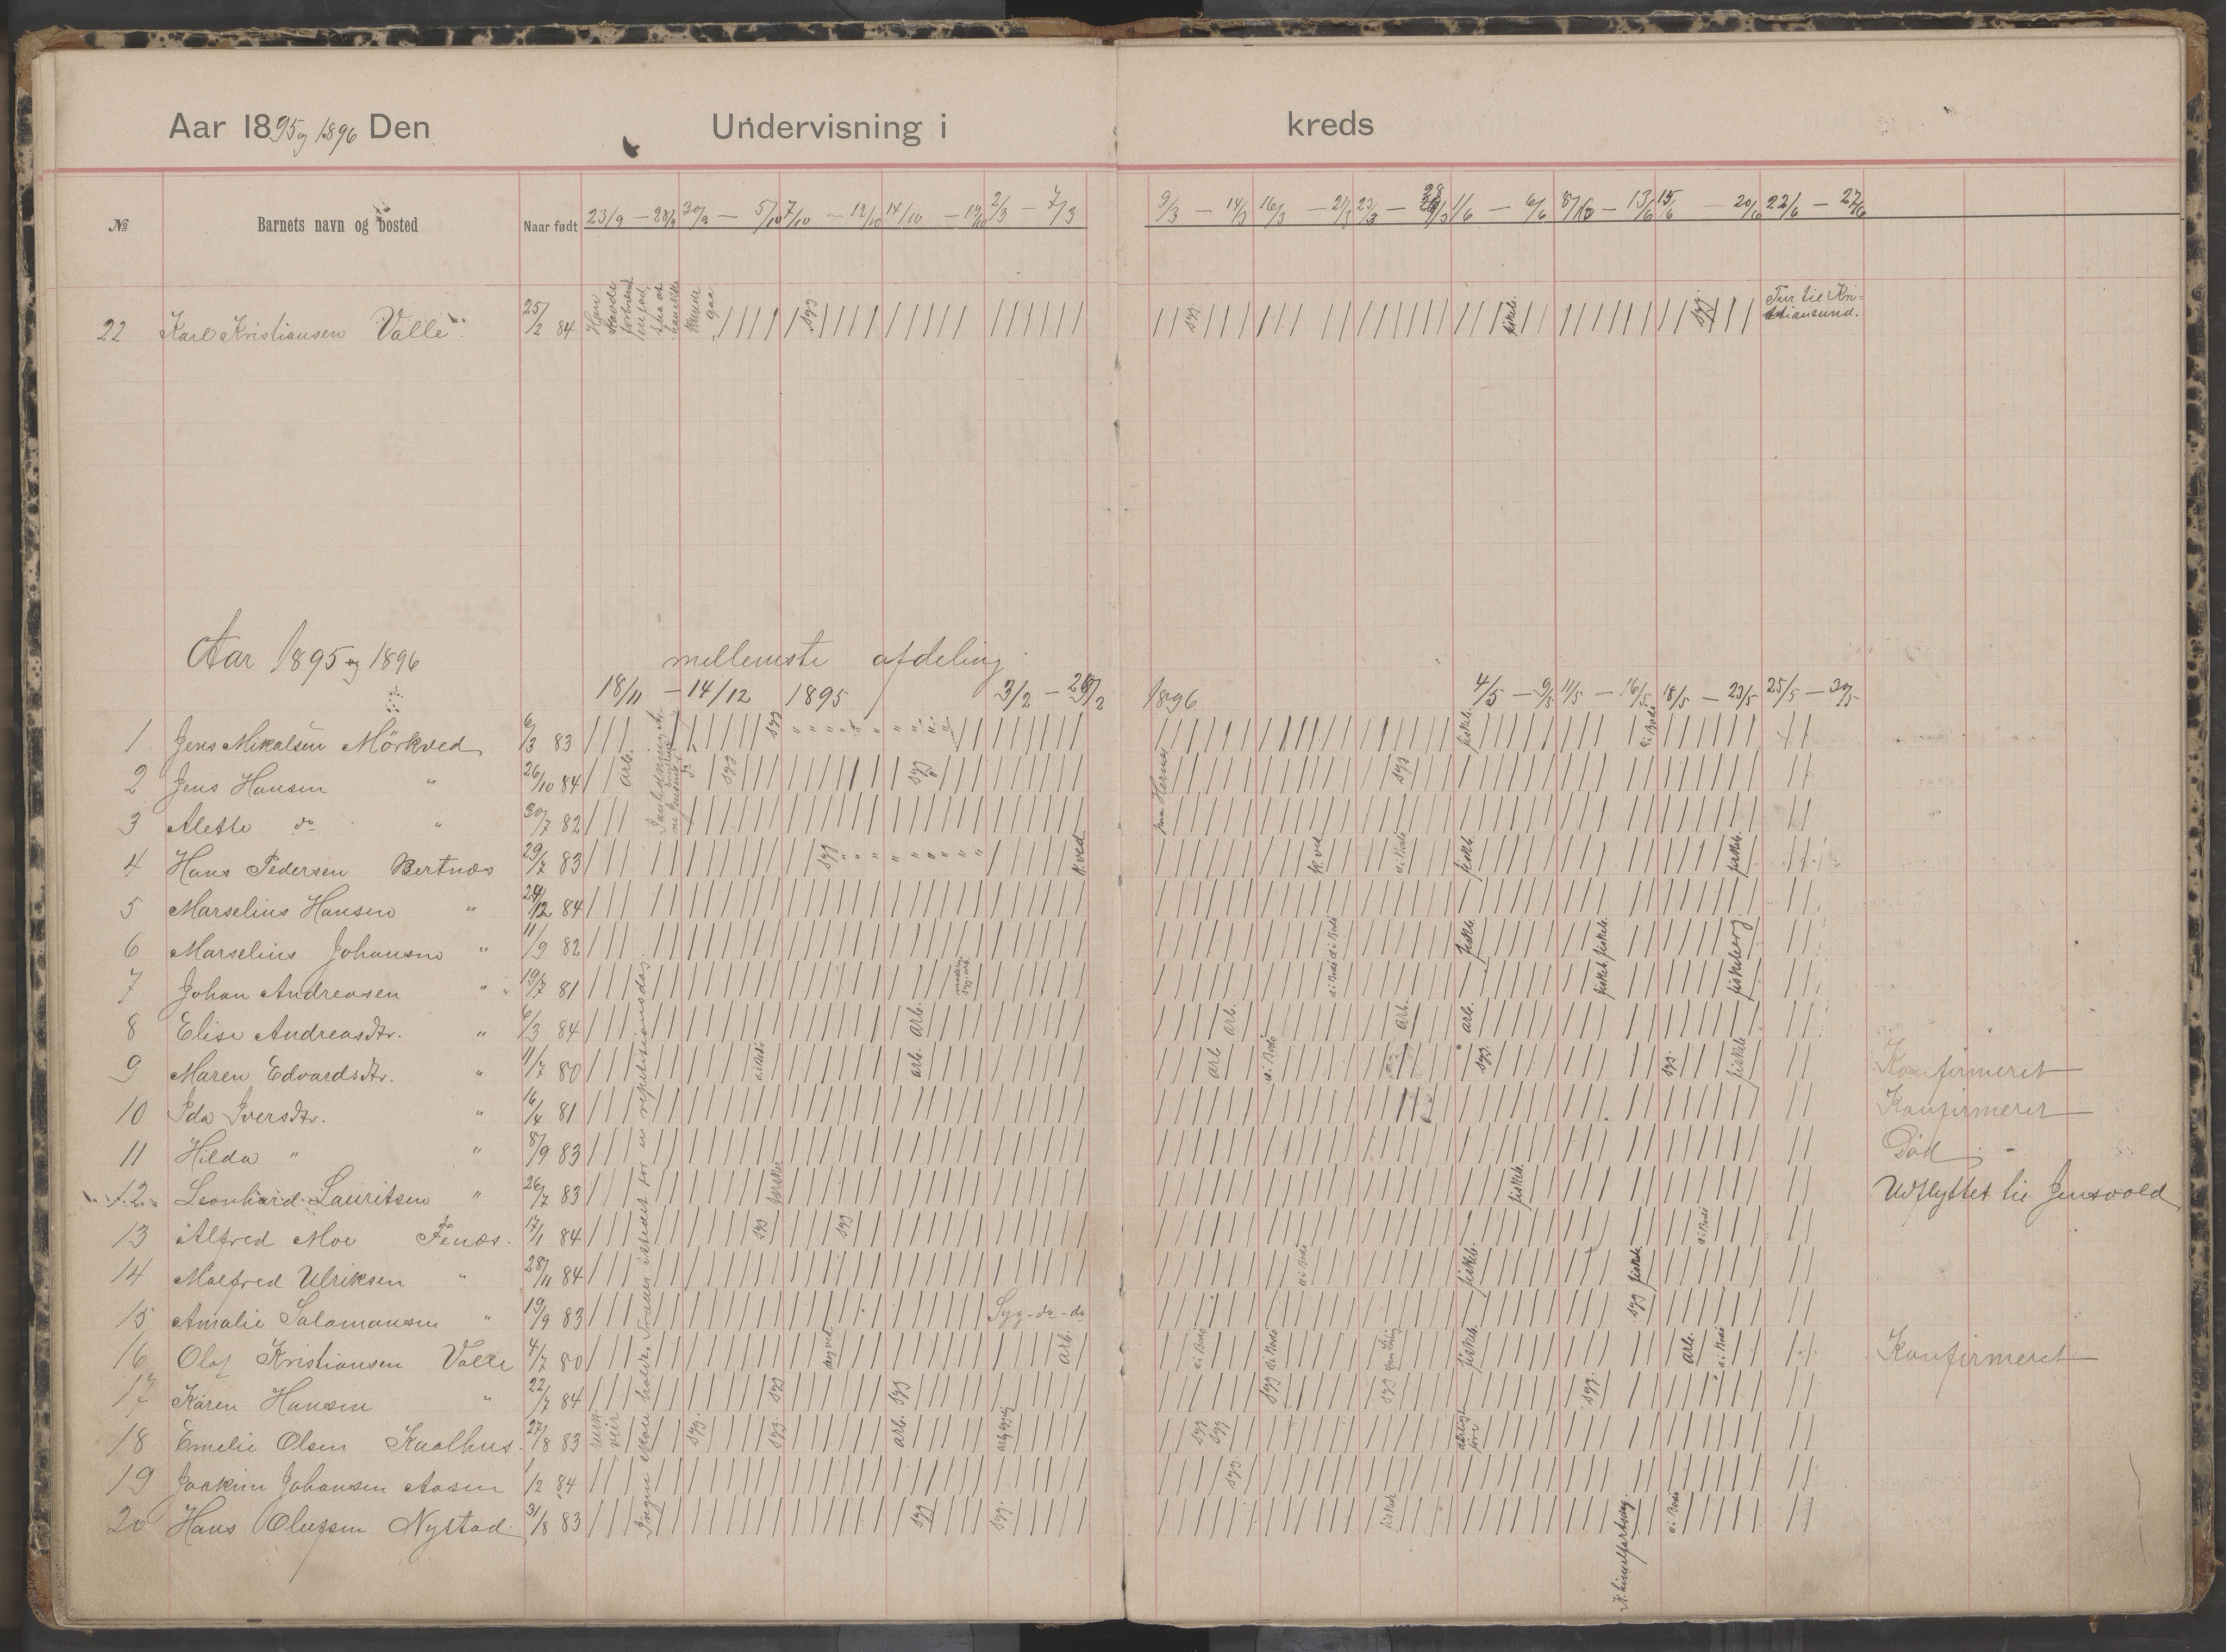 Aar 1895 og 1896 Den Undervisning i kreds
№ Barnets navn og bosted Naar født 23/9 – 28/9 30/9 – 5/10 7/10 – 12/10 14/10 – 19/10 2/3 – 7/3 9/3 – 14/3 16/3 – 21/3 23/3 – 28/3 1/6 – 6/6 8/6 – 13/6 15/6 – 20/6 22/6 – 27/6
22 Karl Kristiansen Valle 25/2 84 syg. syg. fiskeb. syg Tur til Kristiansund.
Aar 1895 og 1896 mellemste afdeling
18/11 – 14/12 1895 3/2 – 29/2 1896 4/5 – 9/5 11/5 – 16/5 18/5 – 23/5 25/5 – 30/5
1 Jens Mikalsen Mörkved 6/3 83 syg " " " " " " " " fiskeb. i Bodö
2 Jens Hansen " 26/10 84 arb. syg syg syg
3 Alette do " 30/7 82
4 Hans Pedersen Bertnæs 29/7 83 syg " " " " " " " " k.ved k.ved i Bodö fiskeb. fiskeb.
5 Marselius Hansen " 29/12 84
6 Marselius Johansen " 11/9 82 i Bodö fiskeb. fiskeb.
7 Johan Andreasen " 19/7 81 i Bodö fiskeb.
8 Elise Andreasdtr. " 6/3 84 arb. arb. arb. arb.
9 Maren Edvardsdtr. " 11/7 80 i Bodö arb. arb i Bodö syg. syg. fiskeb. Konfirmeret
10 Ida Iversdtr. " 16/4 81 Konfirmeret
11 Hilda " " 8/9 83 Död
12 Leonhard Lauritsen " 26/7 83 fiskeb. Udflyttet til Jensvold
13 Alfred Moe Fenæs. 17/1 84 syg syg i Bodö
14 Malfred Ulriksen " 28/11 84 i Bodö fiskeb. fiskeb.
15 Amalie Salamonsen " 19/9 83 Syg – do – do syg
16 Olaf Kristiansen Valle 4/7 80 arb. i Bodö i Bodö fiskeb. arb. i Bodö Konfirmeret
17 Karen Hansen " 22/7 84 syg syg syg syg syg.
18 Emelie Olsen Kaalhus. 27/8 83 syg. syg. arb. syg syg
19 Joakim Johansen Aasen 1/2 84 syg.
20 Hans Olufsen Nystad 31/8 83 syg syg. fisket i Bodö
Ingen skole holdt, Træer istedet for en repetitionsdag.
K. himelfartsdag.